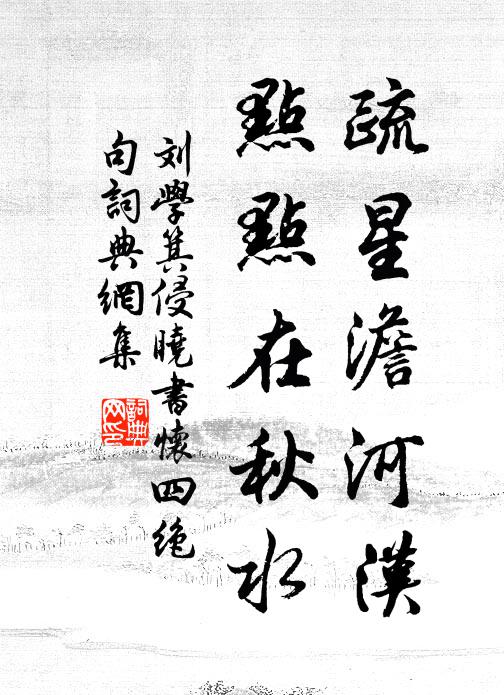 疏星澹河漢
點點在秋水
刘學箕侵曉書懷四绝
句詞典網集
詞典
网印